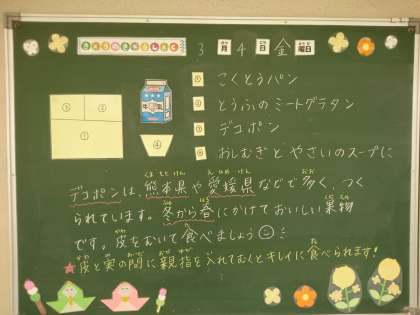 きょうのきゅうしょく 3月4日金曜日
① こくとうパン
② とうふのミートグラタン
③ デコポン
④ おしむぎとやさいのスープに
③ ②
①
④
牛乳
デコポンは、熊本県や愛媛県などで多く、つく
られています。冬から春にかけておいしい果物
です。皮をむいて食べましょう!
★皮と実の間に親指を入れてむくとキレイに食べられます!